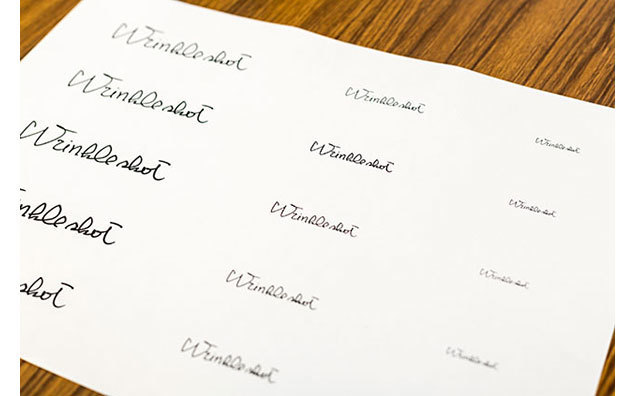 Wrinkleshot
Wrinkleshot
Wrinkleshot
nkleshot
shot
Wrinkleshot
Wrinkleshot
Wrinkleshot
Wrinkleshot
Wrinkleshot
Wrinkleshot
Wrinkleshot
Wrinkleshot
Wrinkleshot